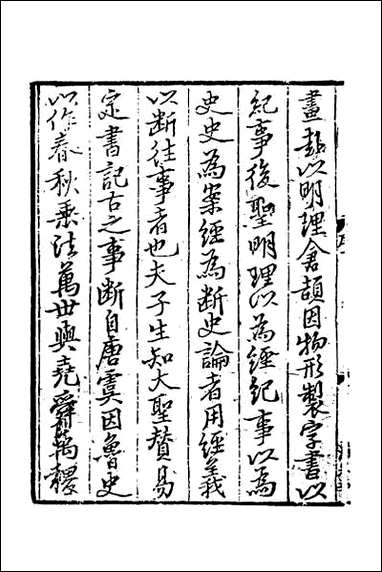 畫卦以明理倉頡因物形製字書以
紀事後聖明理以為經紀事以為
史史為案經為斷史論者用經義
以斷徃事者也夫子生知大聖賛易
定書記古之事斷自唐虞因魯史
以作春秋垂法萬世與堯舜禹稷